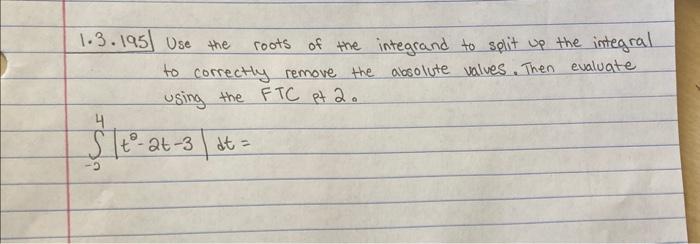 1.3.195| Use the roots of the integrand to split up the integral
to correctly remove the absolute values. Then evaluate
using the FTC pt 2.
4
∫ |t²-2t-3| dt =
-2